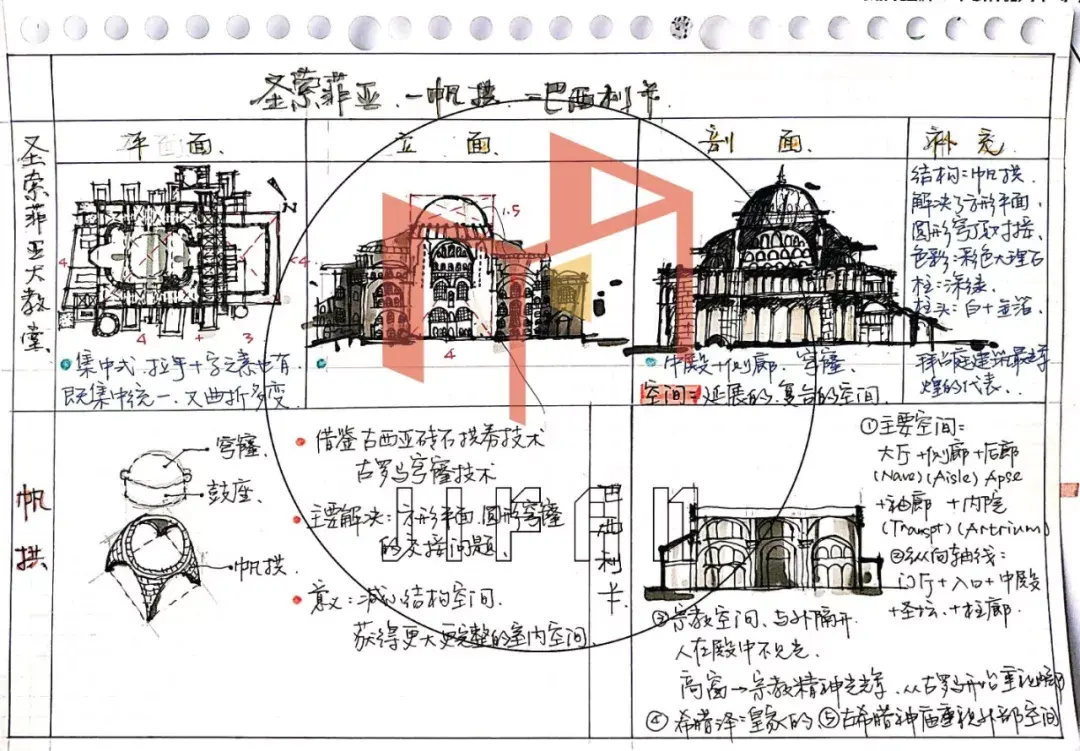 圣索菲亚.一帆拱.二巴西利卡
平面.
立面.
剖面.
补充
圣索菲亚大教堂.
N
4
4
4
3
1.5
4
集中式.拉丁十字元素也有
既集中统一.又曲折多变
中殿+侧廊.穹窿.
空间=延展的.复合的空间.
结构=帆拱.
解决了方形平面.
圆形穹顶对接.
色彩:彩色大理石
柱:深绿.
柱头:白+金箔.
拜占庭建筑最辉
煌的代表.
帆拱
穹窿.
鼓座.
帆拱.
借鉴古西亚砖石拱券技术
古罗马穹窿技术
主要解决:方形平面.圆形穹窿
的交接问题.
意义:减小结构空间.
获得更大更完整的室内空间.
利卡.
①主要空间=
大厅+侧廊+后廊
(Nave)(Aisle) Apse
+袖廊 +内院
(Transpt)(Artrium)
②纵向轴线:
门厅+入口+中殿
+圣坛.+柱廊.
③宗教空间、与外隔开.
人在殿中不见光.
高窗→宗教精神光辉.从古罗马开始重视
④希腊译=皇家的.⑤古希腊神庙重视外部空间